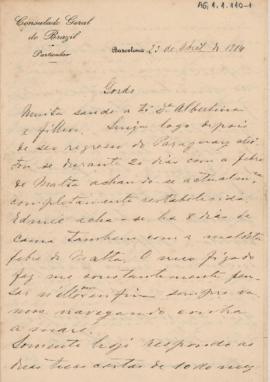 AG.1.1.110-1
Consulado Geral
do Brazil
Particular
Barcelona 23 de Abril de 1914
Gordo
Muita saude a ti Da Albertina
e filhos. Luiza logo depois
de seu regresso do Paraguay
se durante 20 dias com a febre
de Malta achando-se actualmte
completamente restabelecida.
Edméе acha-se ha 8 dias de
cama tambem com a maldita
febre de Malta. O meu figado
faz me constantemente pen-
sar emfim sempre va-
mos navegando contra
a maré.
Somente hoje respondo as
duas tuas cartas de 10 do mez